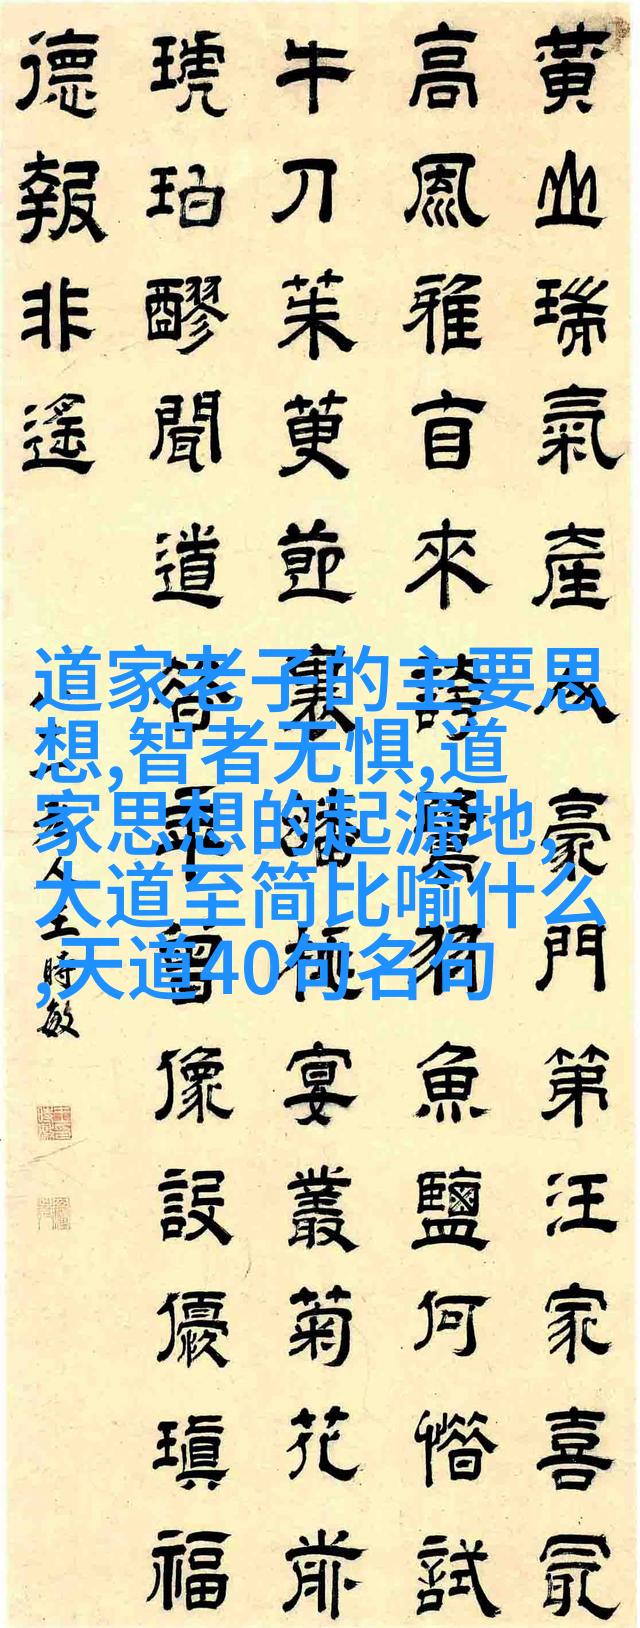 黃山瑞氣產人豪門第汪家喜最
高風雅來誇狗魚鹽何惜試
牛刀茱萸節裏宴叢菊花前
琥珀醪聞道曾像設優瑱福
德報非遙
人王時敏
道家老子的主要思
想,智者无惧,道
家思想的起源地,
大道至简比喻什么
,天道40句名句